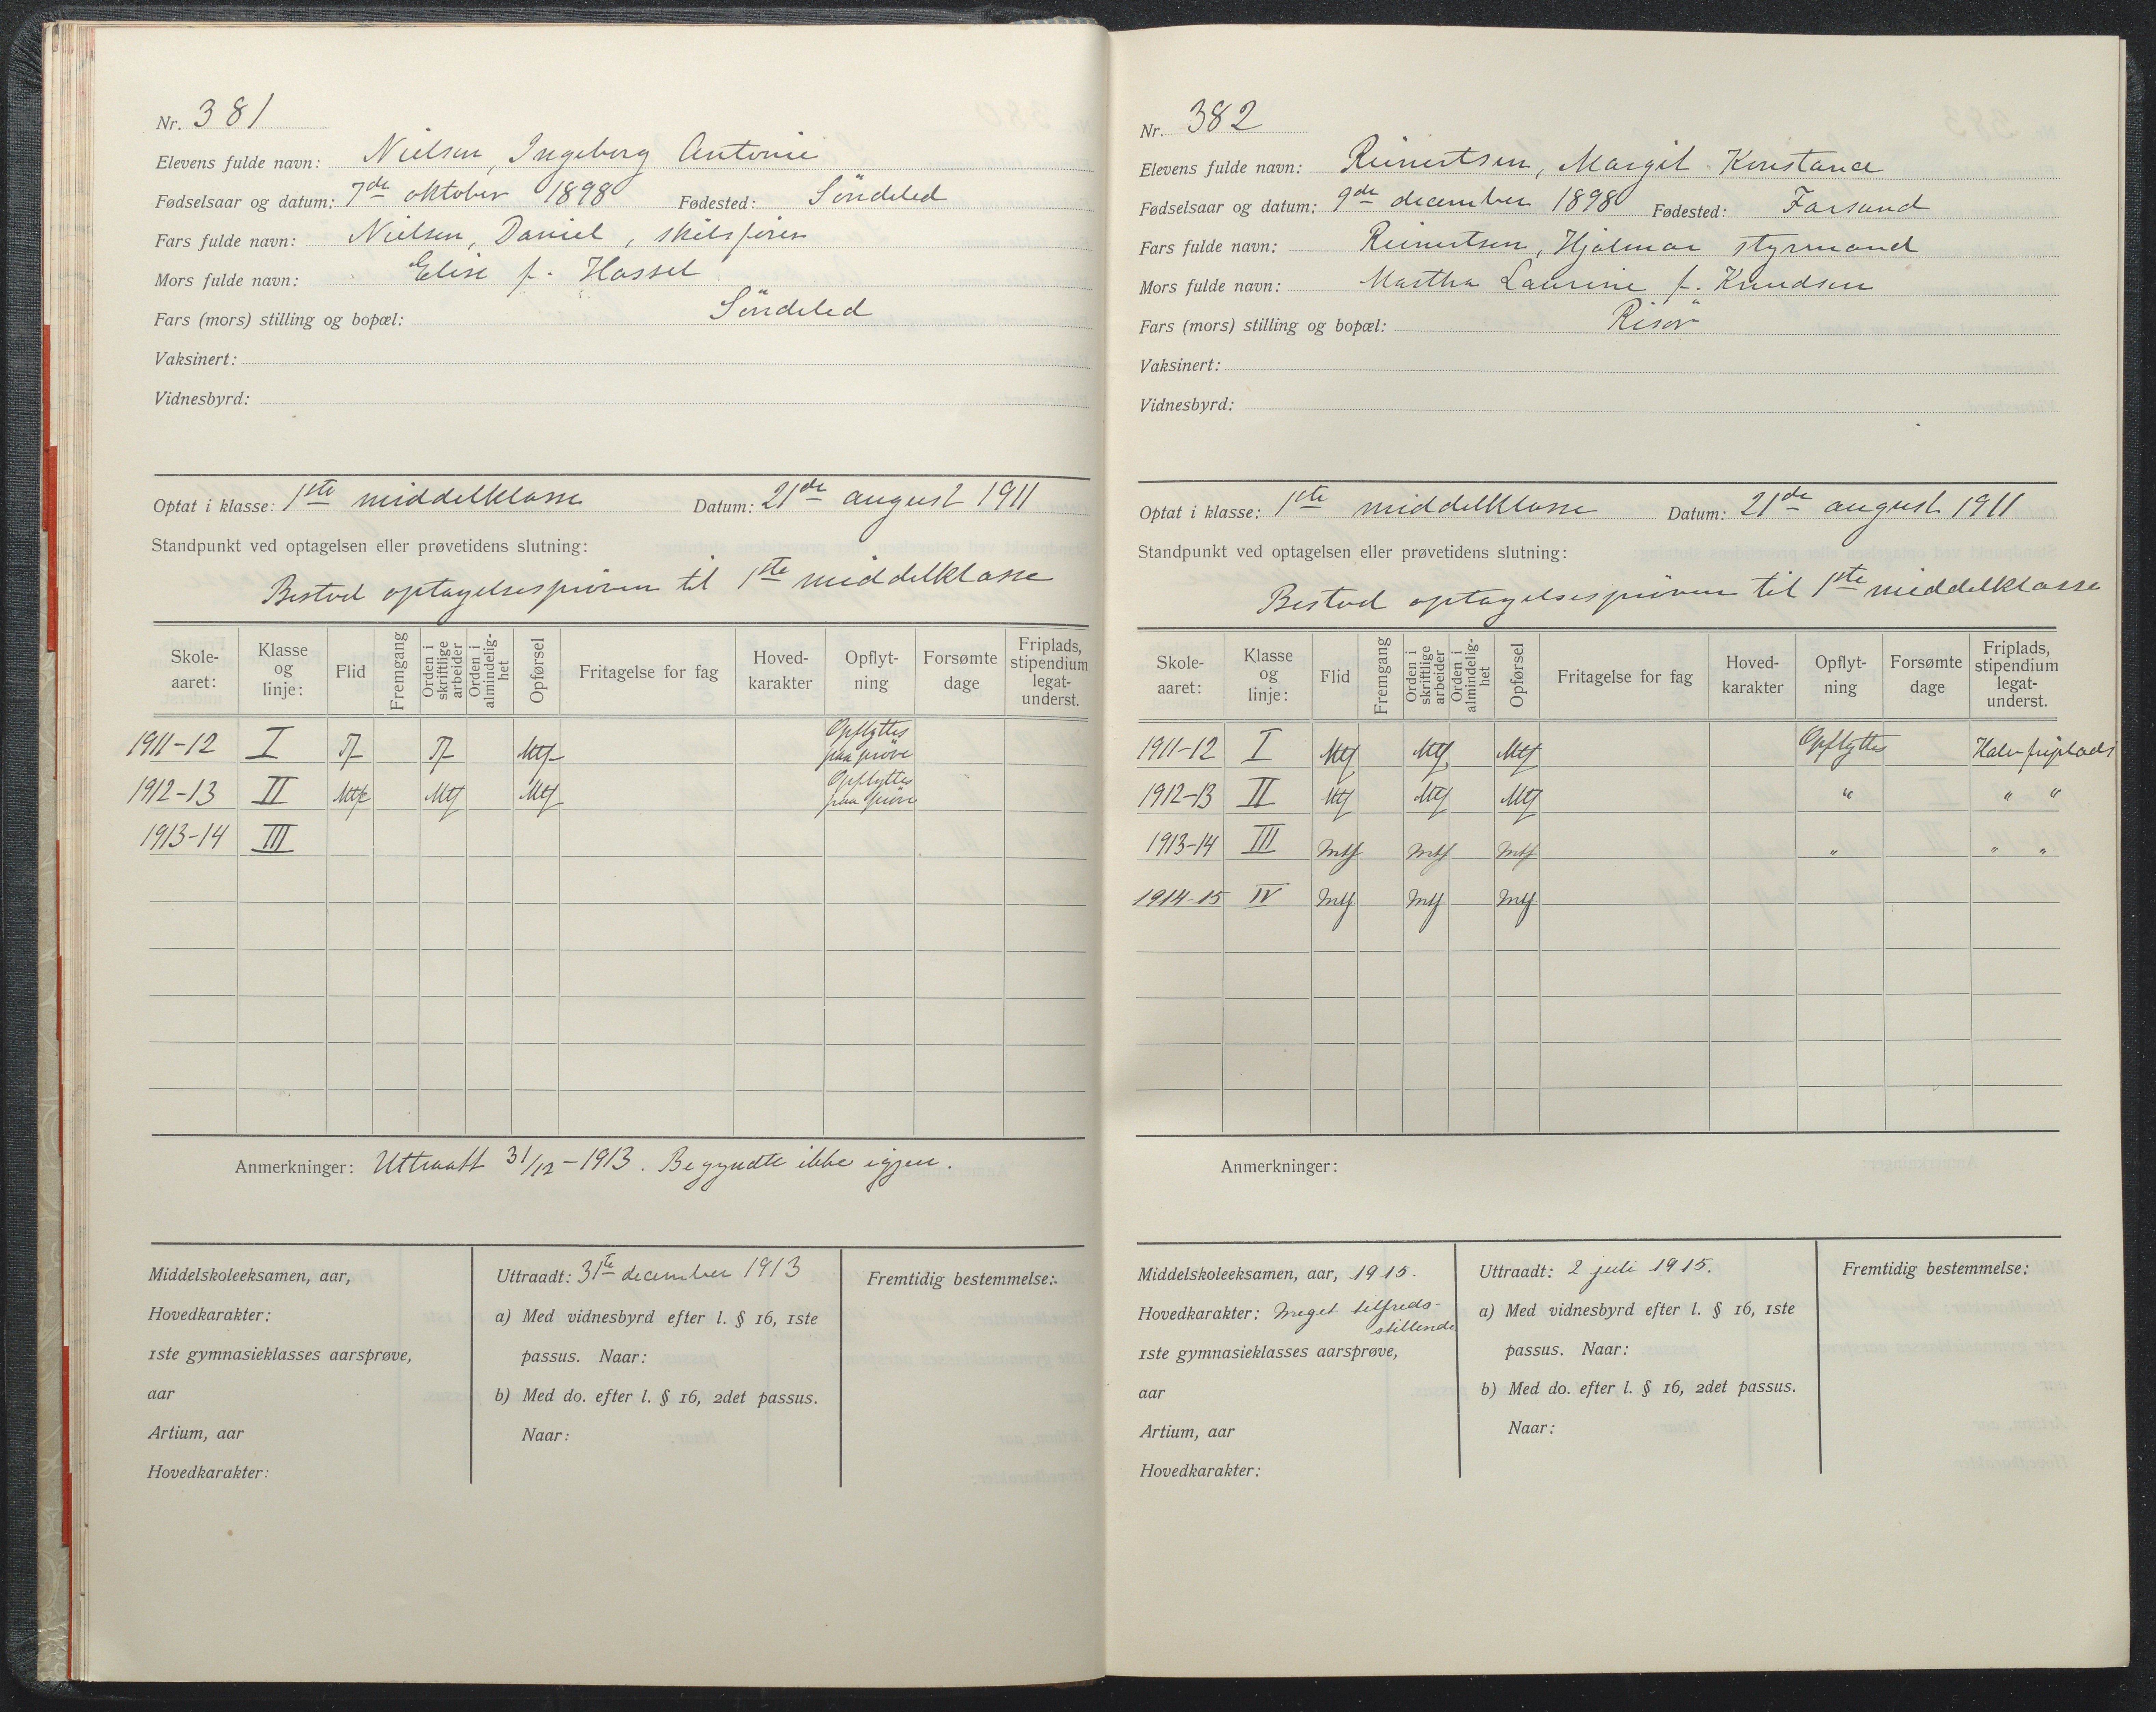 Nr. 381
Elevens fulde navn: Nielsen, Ingeborg Antonie
Fødselsaar og datum: 7de oktober 1898 Fødested: Söndeled
Fars fulde navn: Nielsen, Daniel, skibsförer
Mors fulde navn: Elise f. Hasset
Fars (mors) stilling og bopæl: Söndeled
Vaksinert:
Vidnesbyrd:
Optat i klasse: 1ste middelklasse Datum: 21de august 1911
Standpunkt ved optagelsen eller prøvetidens slutning:
Bestod optagelsesprøven til 1ste middelklasse
Skole-aaret: Klasse og linje: Flid Fremgang Orden i skriftlige arbeider Orden i almindelig-het Opførsel Fritagelse for fag Hoved-karakter Opflyt-ning Forsømte dage Friplads, stipendium legat-underst.
1911-12 I Tf Tf Mtf Opflyttes paa pröve
1912-13 II Mtf Mtf Mtf Opflyttes paa pröve
1913-14 III
Anmerkninger: Uttraatt 31/12-1913. Begyndte ikke igjen.
Middelskoleeksamen, aar,
Hovedkarakter:
1ste gymnasieklasses aarsprøve,
aar
Artium, aar
Hovedkarakter:
Uttraadt: 31te december 1913
a) Med vidnesbyrd efter l. § 16, 1ste
passus. Naar:
b) Med do. efter l. § 16, 2det passus.
Naar:
Fremtidig bestemmelse:
Nr. 382
Elevens fulde navn: Reinertsen, Margit Konstance
Fødselsaar og datum: 9de december 1898 Fødested: Farsund
Fars fulde navn: Reinertsen, Hjalmar styrmand
Mors fulde navn: Martha Laurine f. Knudsen
Fars (mors) stilling og bopæl: Risör
Vaksinert:
Vidnesbyrd:
Optat i klasse: 1ste middelklasse Datum: 21de august 1911
Standpunkt ved optagelsen eller prøvetidens slutning:
Bestod optagelsesprøven til 1ste middelklasse
Skole-aaret: Klasse og linje: Flid Fremgang Orden i skriftlige arbeider Orden i almindelig-het Opførsel Fritagelse for fag Hoved-karakter Opflyt-ning Forsømte dage Friplads, stipendium legat-underst.
1911-12 I Mtf Mtf Mtf Opflyttes Halv friplads
1912-13 II Mtf Mtf Mtf " " "
1913-14 III Mtf Mtf Mtf " " "
1914-15 IV Mtf Mtf Mtf
Anmerkninger:
Middelskoleeksamen, aar, 1915.
Hovedkarakter: Meget tilfreds-
stillende
1ste gymnasieklasses aarsprøve,
aar
Artium, aar
Hovedkarakter:
Uttraadt: 2 juli 1915.
a) Med vidnesbyrd efter l. § 16, 1ste
passus. Naar:
b) Med do. efter l. § 16, 2det passus.
Naar:
Fremtidig bestemmelse: